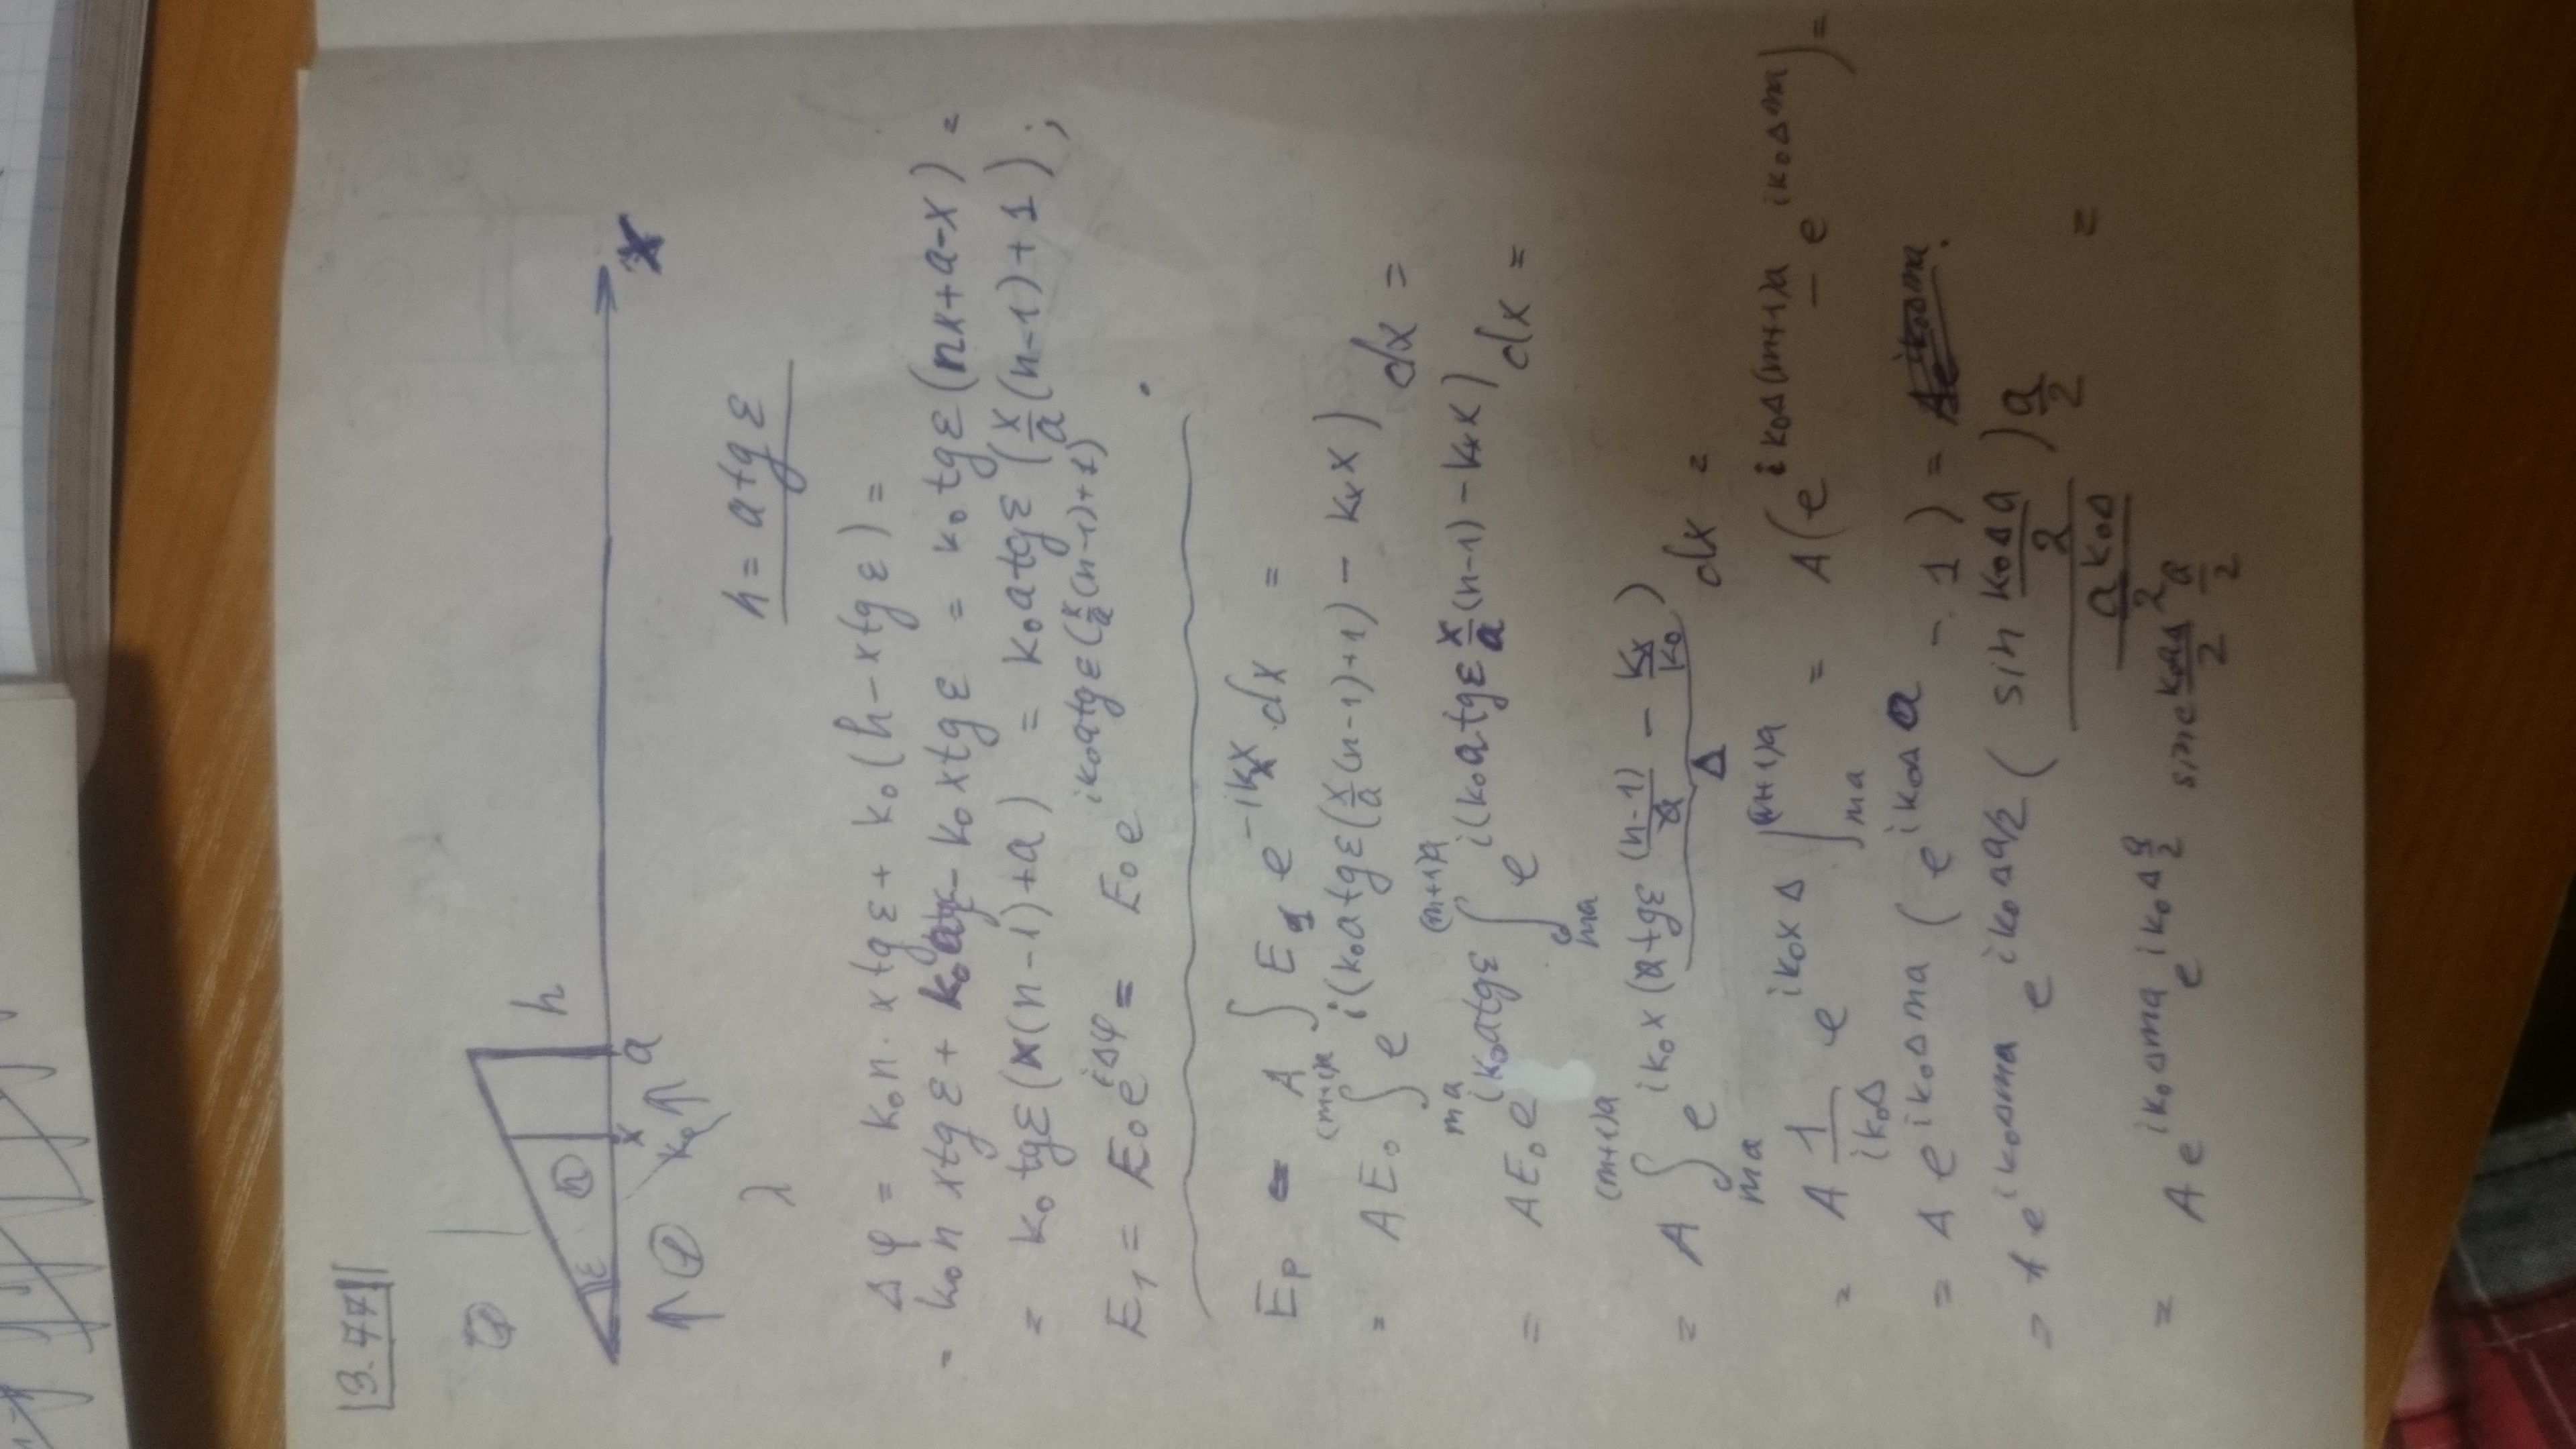 3.77
1
h
ε
n
x
a
x
1
k₀
λ
h = a tg ε
Δφ = k₀n · x tg ε + k₀(h − x tg ε) =
= k₀n x tg ε + k₀ a tg ε − k₀ x tg ε = k₀ tg ε (nx + a − x) =
= k₀ tg ε (x(n−1) + a) = k₀ a tg ε (x/a (n−1) + 1);
E₁ = E₀e^{iΔφ} = E₀e^{ik₀a tg ε (x/a (n−1)+1)}.
E_p = A ∫ E₁ e^{−ik_x x} dx =
= AE₀ ∫_{ma}^{(m+1)a} e^{i(k₀a tg ε (x/a (n−1)+1) − k_x x)} dx =
= AE₀e^{ik₀a tg ε} ∫_{ma}^{(m+1)a} e^{i(k₀a tg ε x/a (n−1) − k_x x)} dx =
= A ∫_{ma}^{(m+1)a} e^{ik₀x (a tg ε (n−1)/a − k_x/k₀)} dx =
Δ
= A 1/(ik₀Δ) e^{ik₀xΔ} |_{ma}^{(m+1)a} = A(e^{ik₀Δ(m+1)a} − e^{ik₀Δma}) =
= A e^{ik₀Δma} (e^{ik₀Δa} − 1) =
= A e^{ik₀Δma} e^{ik₀Δa/2} (sin (k₀Δa/2) / (ak₀Δ/2)) a/2 =
= A e^{ik₀Δma} e^{ik₀Δ a/2} sinc (k₀aΔ/2) a/2